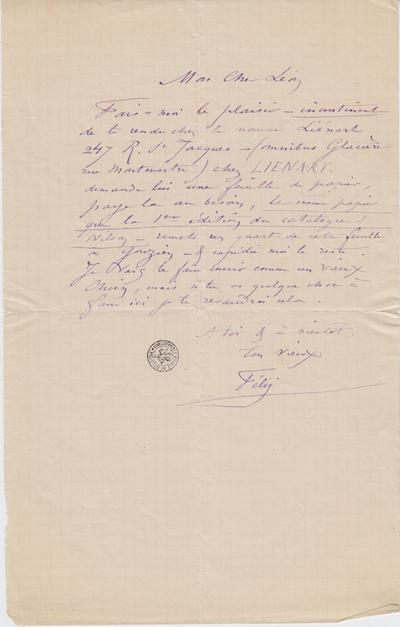 Mon Cher Léon
Fais=moi le plaisir – incontinent
de te rendre chez le nommé Liénart
247 R. St Jacques – (omnibus Glacière
rue Montmartre) chez LIENART.
demande lui une feuille de papier,
paye la au besoin, le même papier
que la 1ere édition du catalogue
– remets un quart de cette feuille
à – & expédie moi le reste.
Je vais te faire courir comme un vieux
chien, mais si tu as quelque chose à
faire ici je te revaudrai cela.
A toi & à bientôt.
ton vieux
Fély